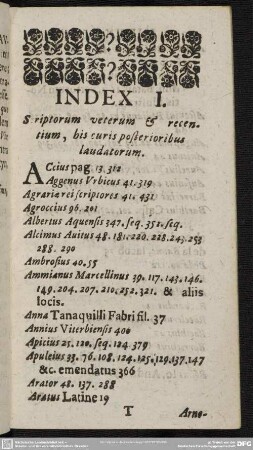 INDEX I.
Scriptorum veterum & recen-
tium, his curis posterioribus
laudatorum.
ACcius pag. 13. 312
Aggenus Vrbicus 41. 319
Agrariæ rei scriptores 41. 431
Agroccius 96. 201
Albertus Aquensis 347. seq. 352. seq.
Alcimus Avitus 48. 181. 220. 228. 243. 253
288. 290
Ambrosius 40. 55
Ammianus Marcellinus 39. 117. 143. 146.
149. 204. 207. 210. 252. 321. & aliis
locis.
Anna Tanaquilli Fabri fil. 37
Annius Viterbiensis 400
Apicius 25. 120. seq. 124. 379
Apuleius 33. 76. 108. 124. 125. 129. 137. 147
&c. emendatus 366
Arator 48. 137. 288
Aratus Latine 19
T Arno-